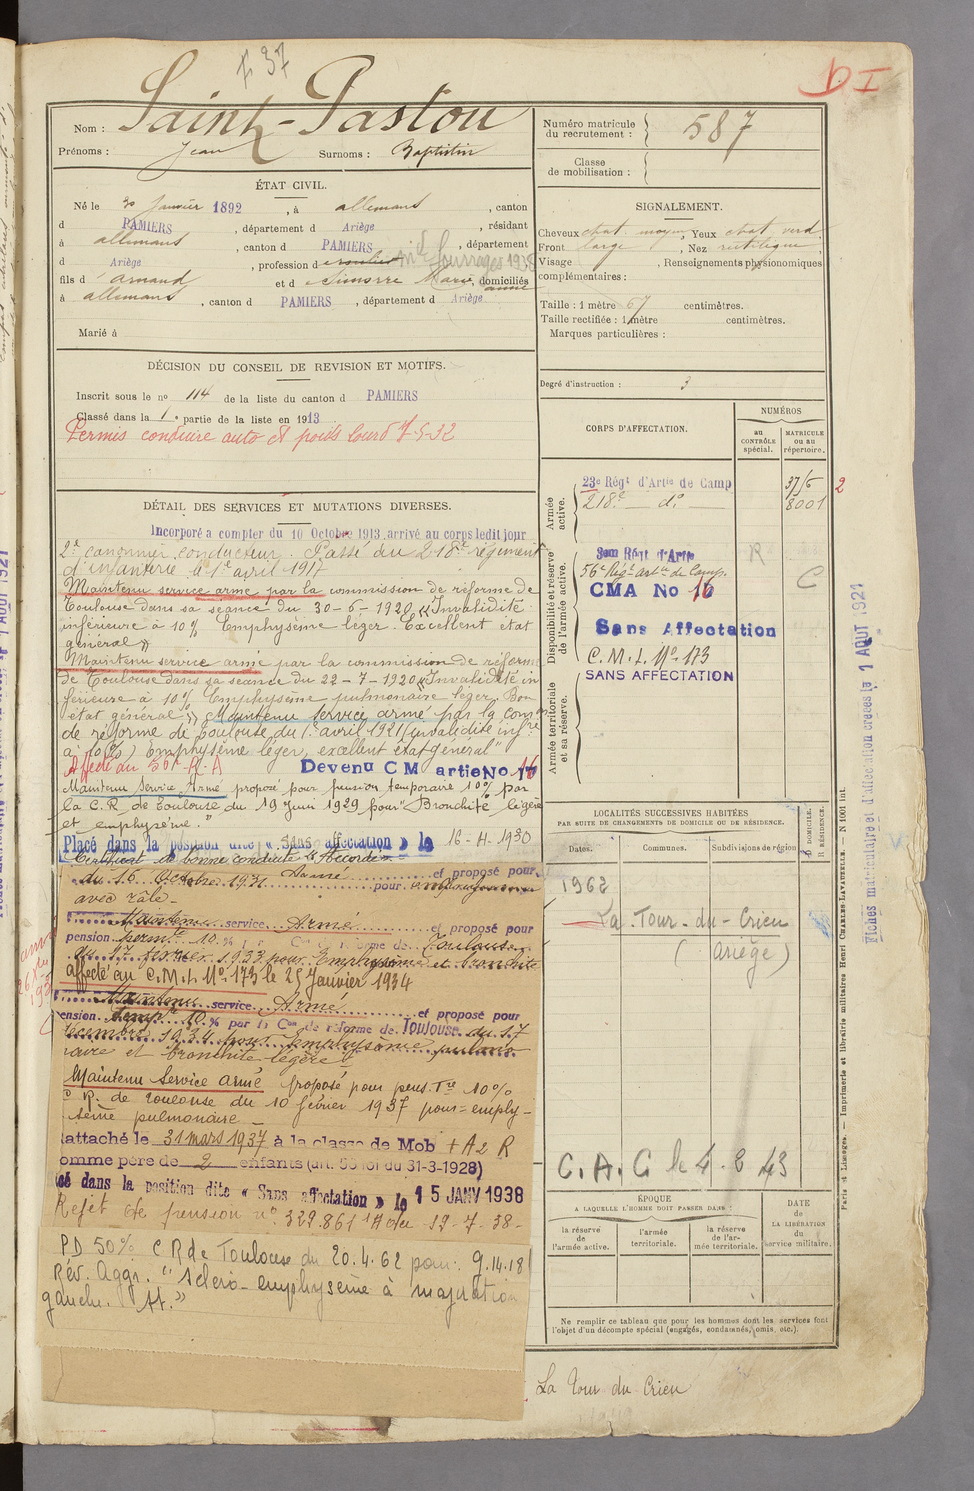 F 37
D I
Nom : Saint-Pastou
Prénoms : Jean Surnoms : Baptistin
Numéro matricule du recrutement : 587
Classe de mobilisation :
ÉTAT CIVIL.
Né le 30 Janvier 1892, à allemans, canton
d PAMIERS, département d Ariège, résidant
à allemans, canton d PAMIERS, département
d Ariège, profession d
fils d' Arnaud et d Marie, domiciliés
à allemans, canton d PAMIERS, départem d Ariège
Marié à
SIGNALEMENT.
Cheveux chat moyen, Yeux chat verd
Front large, Nez rectiligne
Visage, Renseignements physionomiques
complémentaires :
Taille : 1 mètre 67 centimètres.
Taille rectifiée : 1 mètre centimètres.
Marques particulières :
Degré d'instruction : 3
DÉCISION DU CONSEIL DE REVISION ET MOTIFS.
Inscrit sous le nº 114 de la liste du canton d PAMIERS
Classé dans la 1e partie de la liste en 1913
Permis conduire auto et poids lourd 7-5-32
DÉTAIL DES SERVICES ET MUTATIONS DIVERSES.
Incorporé a compter du 10 Octobre 1913, arrivé au corps ledit jour
2e canonnier conducteur. Passé au 218e régiment
d'infanterie le 1er avril 1917
Maintenu service armé par la commission de réforme de
Toulouse dans sa séance du 30-6-1920 « Invalidité
inférieure à 10% Emphysème léger. Excellent état
général »
Maintenu service armé par la commission de réforme
de Toulouse dans sa séance du 22-7-1920 « Invalidité in
férieure à 10% Emphysème pulmonaire léger. Bon
état général » Maintenu service armé par la com
de réforme de Toulouse du 1er avril 1921 (invalidité infre
à 10%) Emphysème léger, excellent état général"
Affecté au 56e R.A Devenu C M artie No 16
Maintenu Service Armé proposé pour pension temporaire 10% par
la C.R de Toulouse du 19 Juin 1929 pour " Bronchite légère
et emphysème. "
Placé dans la position dite « sans affectation » le 16-4-1930
Certificat de bonne conduite Accordé
Armé et proposé pour
du 16 Octobre 1931 pour
avec râle -
Maintenu service Armé et proposé pour
pension permte 10 % Con de réforme de Toulouse
du 17 février 1933 pour Emphysème et bronchite
affecté au C.M.I. Nº 173 le 25 Janvier 1934
Maintenu service Armé et proposé pour
ension tempre 10 % par la Con de réforme de Toulouse du 17
décembre 1934 pour Emphysème pulmo
naire et bronchite légère
Maintenu Service armé proposé pour pens. Tre 10%
C R. de Toulouse du 10 février 1937 pour = emphy-
sème pulmonaire -
attaché le 31 mars 1937 à la classe de Mob + A2 R
omme père de 2 enfants (art. 58 loi du 31-3-1928)
cé dans la position dite « Sans affectation » le 15 JANV 1938
Rejet de pension nº 329.861 du 12-7-38-
PD 50% C R de Toulouse du 20.4.62 pour. 9.14.18
Rév. Aggr. " Scléro-emphysème à majoration
gauche. "
CORPS D'AFFECTATION.
NUMÉROS
au CONTRÔLE spécial.
MATRICULE ou au répertoire.
Armée active.
23e Régt d'Artie de Camp 37/6 2
218e — do — 8001
Disponibilité et réserve de l'armée active.
3em Régt d'Artie R
56e Régt Artie de Camp. C
CMA No 16
Sans Affectation
C.M.I. Nº 173
SANS AFFECTATION
Armée territoriale et sa réserve.
LOCALITÉS SUCCESSIVES HABITÉES
PAR SUITE DE CHANGEMENTS DE DOMICILE OU DE RÉSIDENCE.
Dates. Communes. Subdivisions de région
D DOMICILE.
R RÉSIDENCE.
1962
La Tour-du-Crieu
(Ariège)
C.A.C le 4-8 43
ÉPOQUE
A LAQUELLE L'HOMME DOIT PASSER DANS :
la réserve de l'armée active.
l'armée territoriale.
la réserve de l'armée territoriale.
DATE DE LA LIBÉRATION du service militaire.
Ne remplir ce tableau que pour les hommes dont les services font
l'objet d'un décompte spécial (engagés, condamnés, omis, etc.).
La Tour du Crieu
Paris et Limoges. — Imprimerie et librairie militaires Henri CHARLES-LAVAUZELLE. — N 1001 int.
Fiches matriculaire et d'affectation créées le 1 AOUT 1921